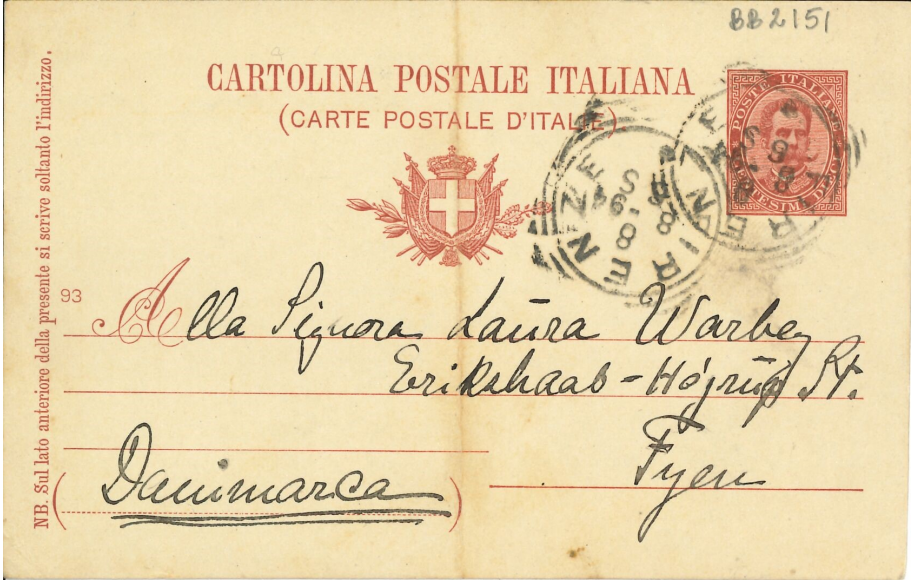 BB2151
CARTOLINA POSTALE ITALIANA
(CARTE POSTALE D'ITALIE)
POSTE ITALIANE
FIRENZE
8 - 94
FIRENZE
NB. Sul lato anteriore della presente si scrive soltanto l'indirizzo.
93
Alla Signora Laura Warberg
Erikshaab - Højrup St.
Fyen
Danimarca